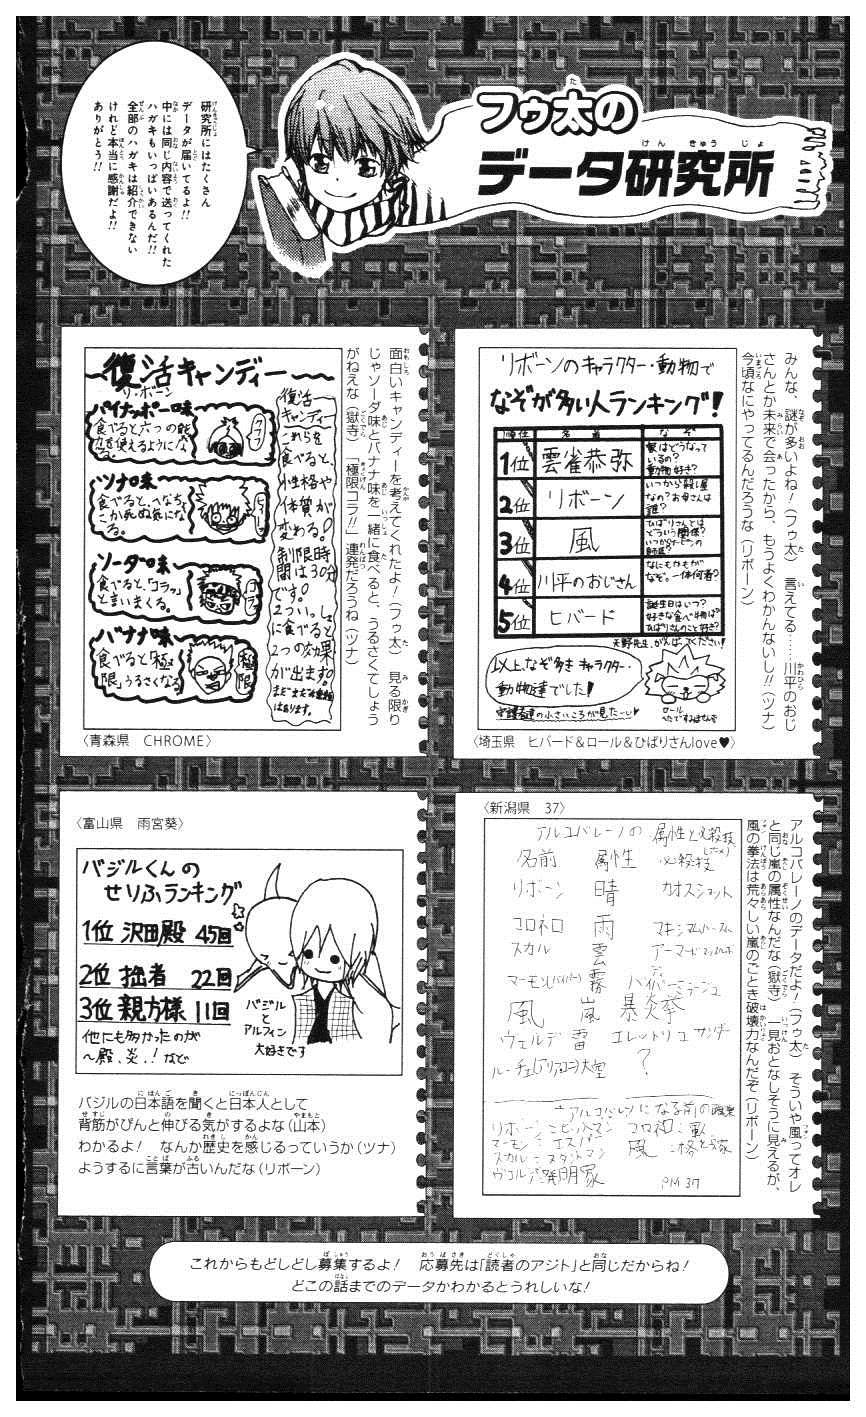 フゥ太の
データ研究所
研究所にはたくさん
データが届いてるよ!!
中には同じ内容で送ってくれた
ハガキもいっぱいあるんだ!!
全部のハガキは紹介できない
けれど本当に感謝だよ!!
ありがとう!!
みんな、謎が多いよね!(フゥ太) 言えてる……川平のおじ
さんとか未来で会ったから、もうよくわかんないし!!(ツナ)
今頃なにやってるんだろうな(リボーン)
リボーンのキャラクター・動物で
なぞが多い人ランキング!
順位 名者 なぞ
1位 雲雀恭弥 家はどうなって
いるの?
動物好き?
2位 リボーン いつから殺し屋
なの?お母さんは
誰?
3位 風 ひばりさんとは
どういう関係?
4位 川平のおじさん なにもかもが
なぞ。一体何者?
5位 ヒバード 誕生日はいつ?
好きな食べ物は?
ひばりさんのこと好き?
天野先生、がんばってください!
以上、なぞ多きキャラクター・
動物達でした!
守護者達の小さいころが見たーい♥
ロール
へたですみません
〈埼玉県 ヒバード&ロール&ひばりさんlove♥〉
面白いキャンディーを考えてくれたよ!(フゥ太) 見る限り
じゃソーダ味とバナナ味を一緒に食べると、うるさくてしょう
がねえな(獄寺) 「極限コラ!!」連発だろうね(ツナ)
〜復活キャンディー〜
リ・ボーン
パイナッポー味
食べると六つの能
力を使えるようにな
る。
クフフ
ツナ味
食べると、へなちょ
こか死ぬ気にな
る。
ヒィー
ソーダ味
食べると、「コラッ」
と言いまくる。
コラ
バナナ味
食べると「極
限」うるさくなる
極限
復活
キャンディー
これらを
食べると、
性格や
体質が
変わる。
制限時
間は30分
です。
2ついっしょ
に食べると
2つの効果
が出ます。
まだまだ種類
はあります。
〈青森県 CHROME〉
〈新潟県 37〉
アルコバレーノのデータだよ!(フゥ太) そういや風ってオレ
と同じ嵐の属性なんだな(獄寺) 一見おとなしそうに見えるが、
風の拳法は荒々しい嵐のごとき破壊力なんだぞ(リボーン)
アルコバレーノの属性と必殺技
名前 属性 必殺技
リボーン 晴 カオスショット
コロネロ 雨 マキシマムバースト
スカル 雲
マーモン(バイパー) 霧
風 嵐 爆炎拳
ヴェルデ 雷 エレットゥリコサンダー
ルーチェ(アリア、ユニ) 大空 ?
アルコバレーノになる前の職業
リボーン:ヒットマン コロネロ:軍
マーモン:エスパー 風:格とう家
スカル:スタントマン
ヴェルデ:発明家 PM 37
〈富山県 雨宮葵〉
バジルくんの
せりふランキング
1位 沢田殿 45回
2位 拙者 22回
3位 親方様 11回
他にも多かったのが
〜殿、炎、!など
バジル
と
アルフィン
大好きです
バジルの日本語を聞くと日本人として
背筋がぴんと伸びる気がするよな(山本)
わかるよ! なんか歴史を感じるっていうか(ツナ)
ようするに言葉が古いんだな(リボーン)
これからもどしどし募集するよ! 応募先は「読者のアジト」と同じだからね!
どこの話までのデータかわかるとうれしいな!